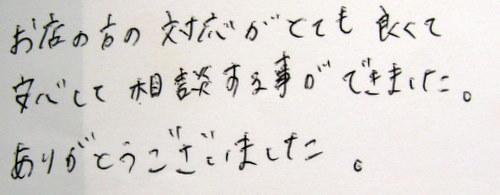 お店の方の対応がとても良くて
安心して相談する事ができました。
ありがとうございました。